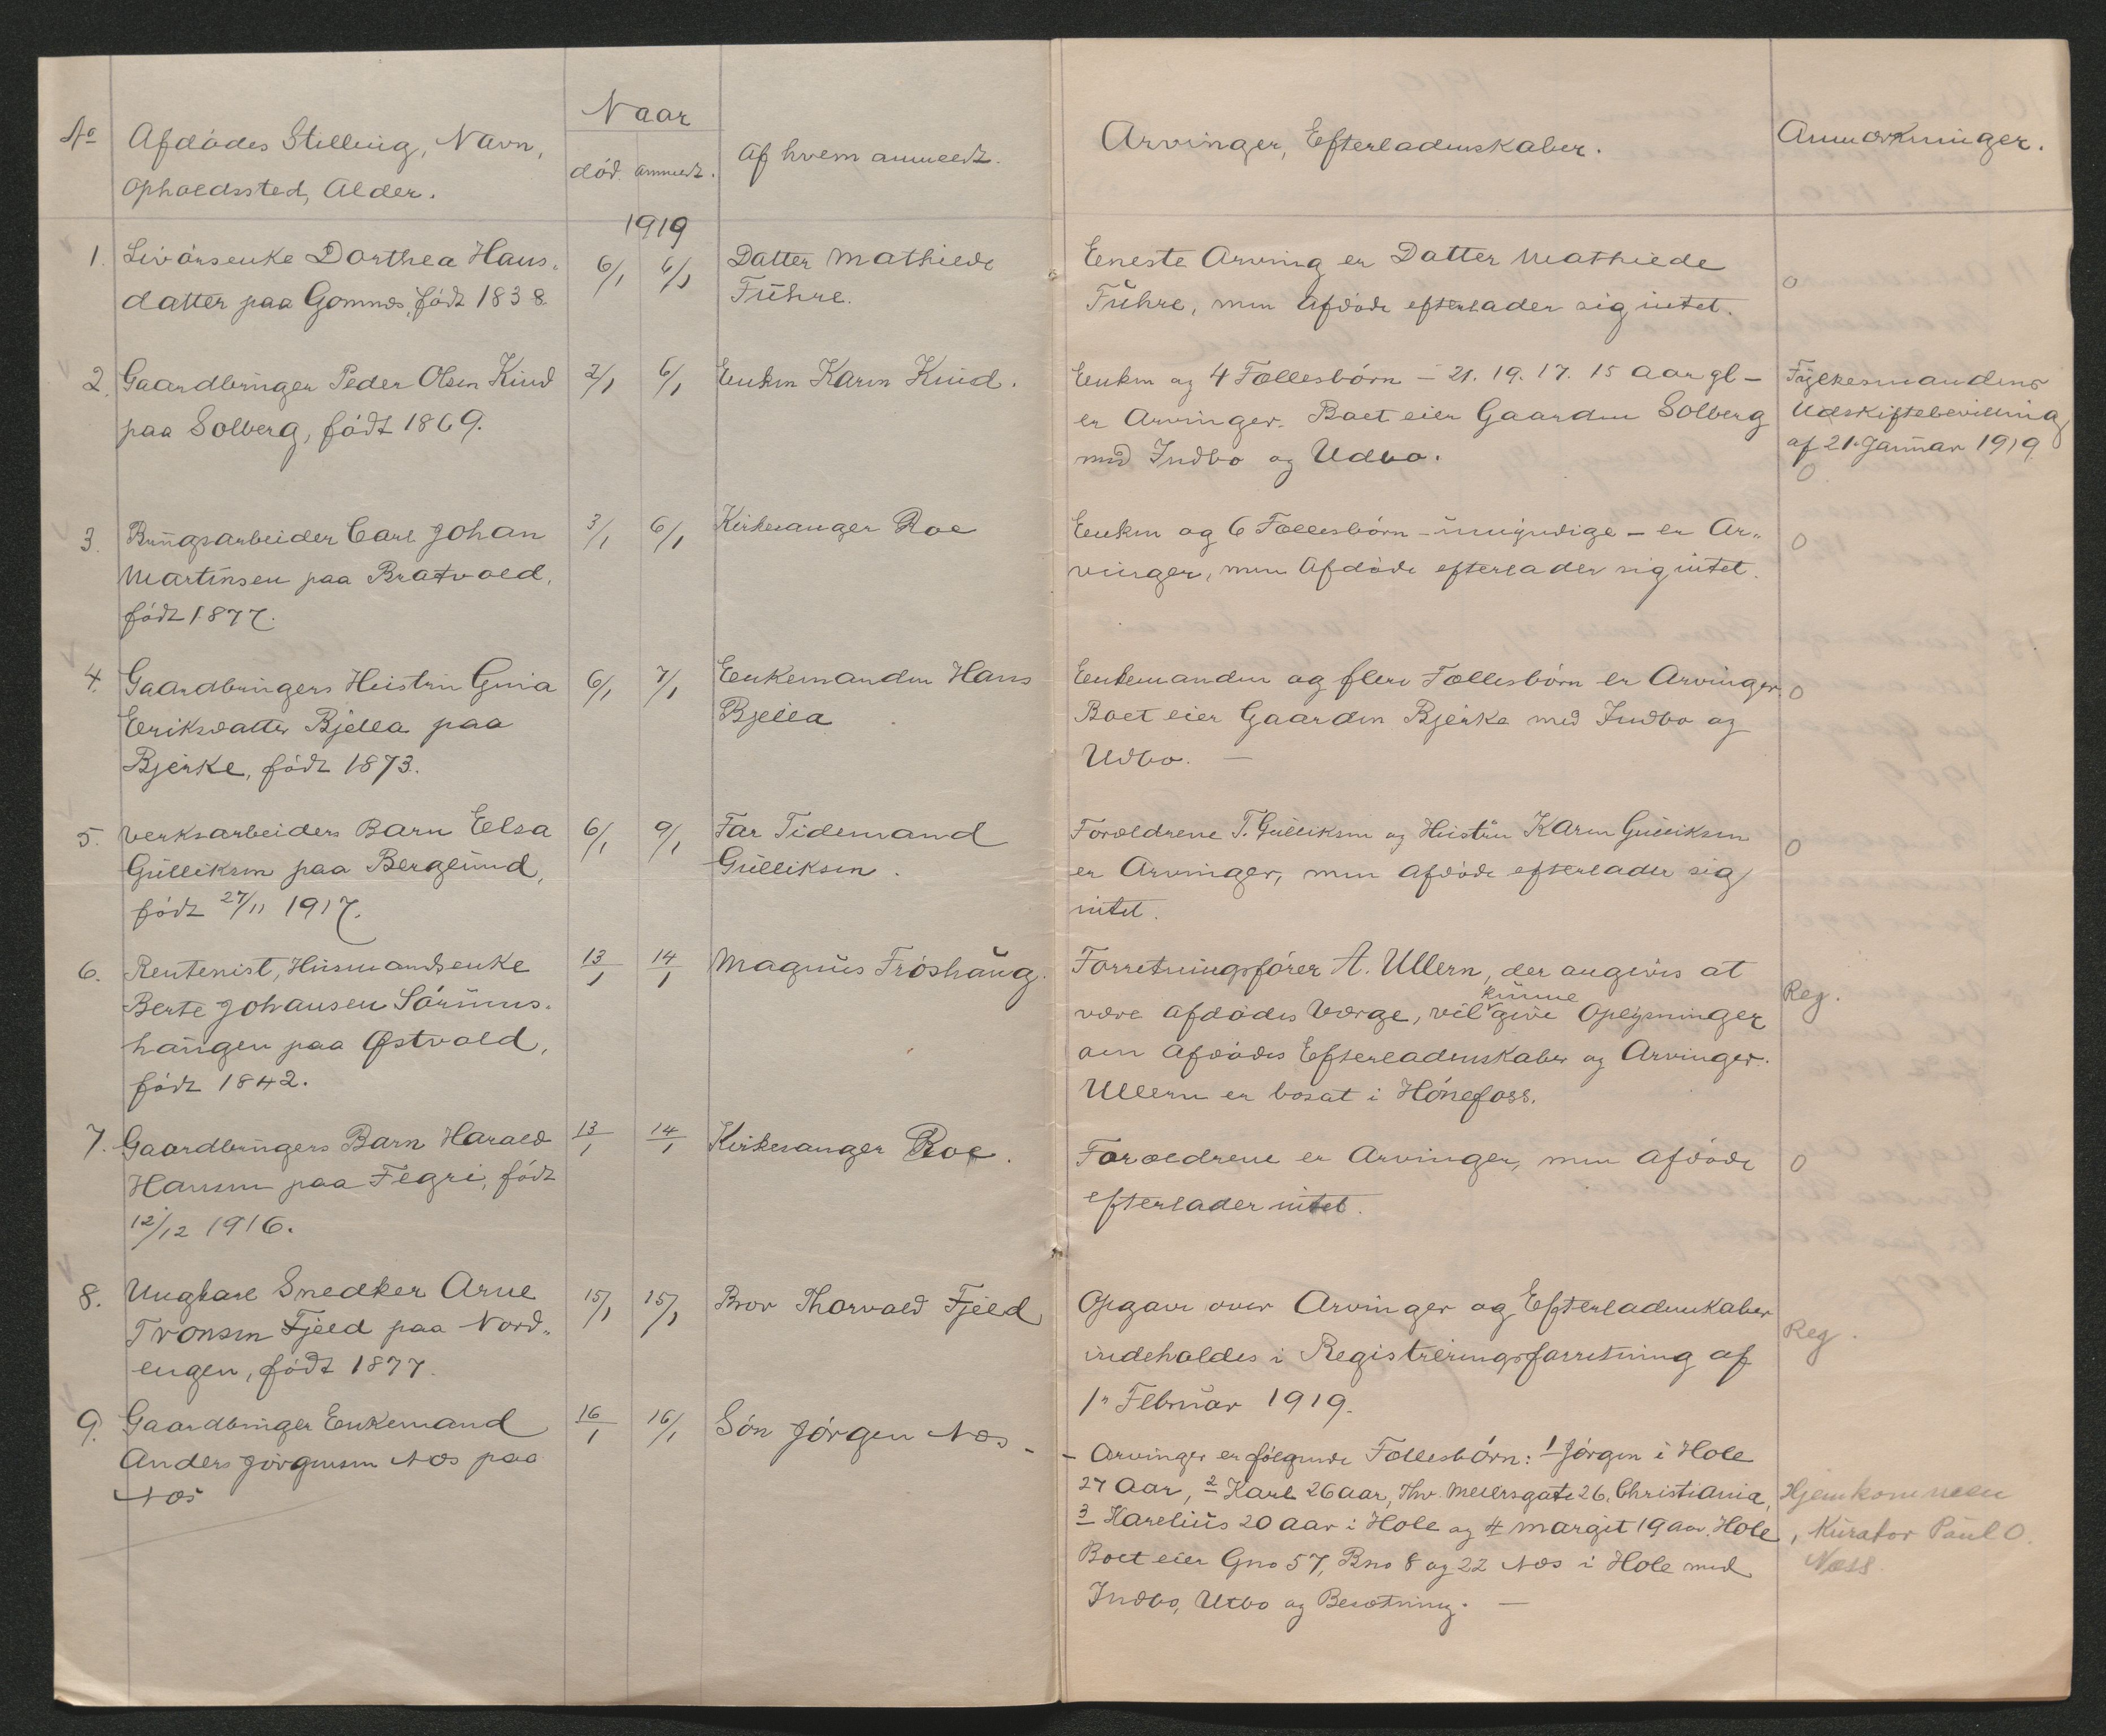 No
Afdødes Stilling, Navn,
Opholdssted, Alder.
Naar
død. anmeldt.
Af hvem anmeldt.
Arvinger, Efterladenskaber.
Anmærkninger.
1919
1. Livørsenke Dorthea Hans-
datter paa Gomnæs, født 1838.
6/1 6/1
Datter Mathilde
Fuhre.
Eneste Arving er Datter Mathilde
Fuhre, men Afdøde efterlader sig intet.
0
2. Gaardbruger Peder Olsen Kind
paa Solberg, født 1869.
2/1 6/1
Enken Karen Kind.
Enken og 4 Fællesbørn – 21. 19. 17. 15 Aar gl –
er Arvinger. Boet eier Gaarden Solberg
med Indbo og Udbo.
Fylkesmandens
Udskiftebevilling
af 21. Januar 1919.
0
3. Brugsarbeider Carl Johan
Martinsen paa Bratvold,
født 1877.
3/1 6/1
Kirkesanger Roe
Enken og 6 Fællesbørn – umyndige – er Ar-
vinger, men Afdøde efterlader sig intet.
0
4. Gaardbrugers Hustru Guia
Eriksdatter Bjella paa
Bjerke, født 1873.
6/1 7/1
Enkemanden Hans
Bjella
Enkemanden og flere Fællesbørn er Arvinger.
Boet eier Gaarden Bjerke med Indbo og
Udbo. —
0
5. Verksarbeiders Barn Elsa
Gulliksen paa Berglund,
født 27/11 1917.
6/1 9/1
Far Tidemand
Gulliksen.
Forældrene T. Gulliksen og Hustru Karen Gulliksen
er Arvinger, men afdøde efterlader sig
intet.
0
6. Rentenist, Husmandsenke
Berte Johansen Sørums-
haugen paa Østvold,
født 1842.
13/1 14/1
Magnus Frøshaug.
Forretningsfører A. Ullern, der angives at
være afdødes Værge, vil kunne give Oplysninger
om Afdødes Efterladenskaber og Arvinger.
Ullern er bosat i Hønefoss.
Reg.
7. Gaardbrugers Barn Harald
Hansen paa Fegri, født
12/12 1916.
13/1 14/1
Kirkesanger Roe.
Forældrene er Arvinger, men Afdøde
efterlader intet.
0
8. Ungkarl Snedker Arne
Tronsen Fjeld paa Nord-
engen, født 1877.
15/1 15/1
Bror Thorvald Fjeld
Opgave over Arvinger og Efterladenskaber
indeholdes i Registreringsforretning af
1" Februar 1919.
Reg.
9. Gaardbruger Enkemand
Anders Jørgensen Næs paa
Næs
16/1 16/1
Søn Jørgen Næs –
– Arvinger er følgende Fællesbørn: 1 Jørgen i Hole
27 Aar, 2 Karl 26 aar, Thv. Meyersgate 26, Christiania,
3 Karelius 20 aar i Hole og 4 Margit 19 aar. Hole
Boet eier Gno 57, Bno 8 og 22 Næs i Hole med
Indbo, Utbo og Besætning. —
Hjemkommen
, Kurator Paul O.
Næss.